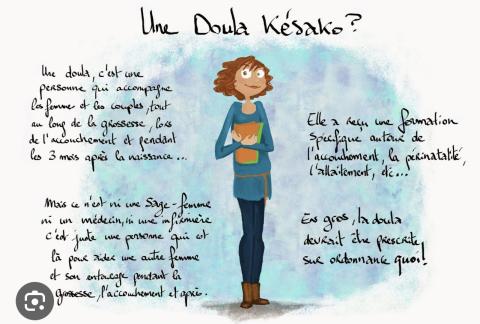 Une Doula Késako?
Une doula, c'est une
personne qui accompagne
les femme et les couples, tout
au long de la grossesse, lors
de l'accouchement et pendant
les 3 mois après la naissance...
Elle a reçu une formation
Spécifique autour de
l'accouchement, la périnatalité,
l'allaitement, etc...
Mais ce n'est ni une Sage-femme
ni un médecin, ni une infirmière
c'est juste une personne qui est
là pour aider une autre femme
et son entourage pendant la
grossesse, l'accouchement et après.
En gros, la doula
devrait être prescrite
sur ordonnance quoi!